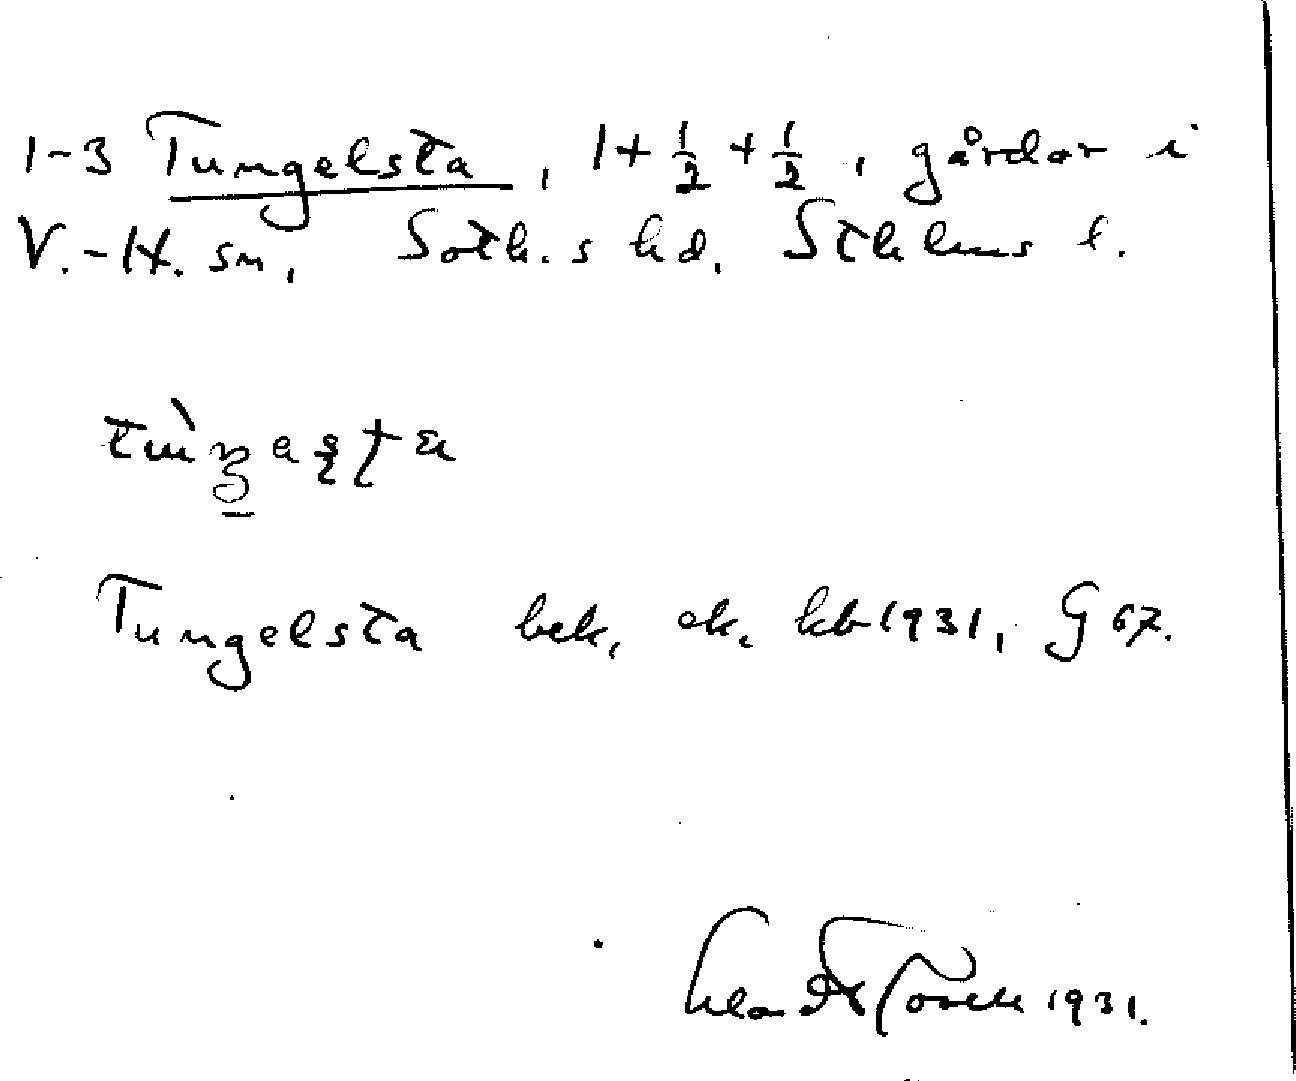 1-3 Tungelsta, 1+½+½, gårdar i
V.-H. sn, Soth.s hd, Sthlms l.
Tungelsta bek, ek. kb 1931, G 67.
1931.